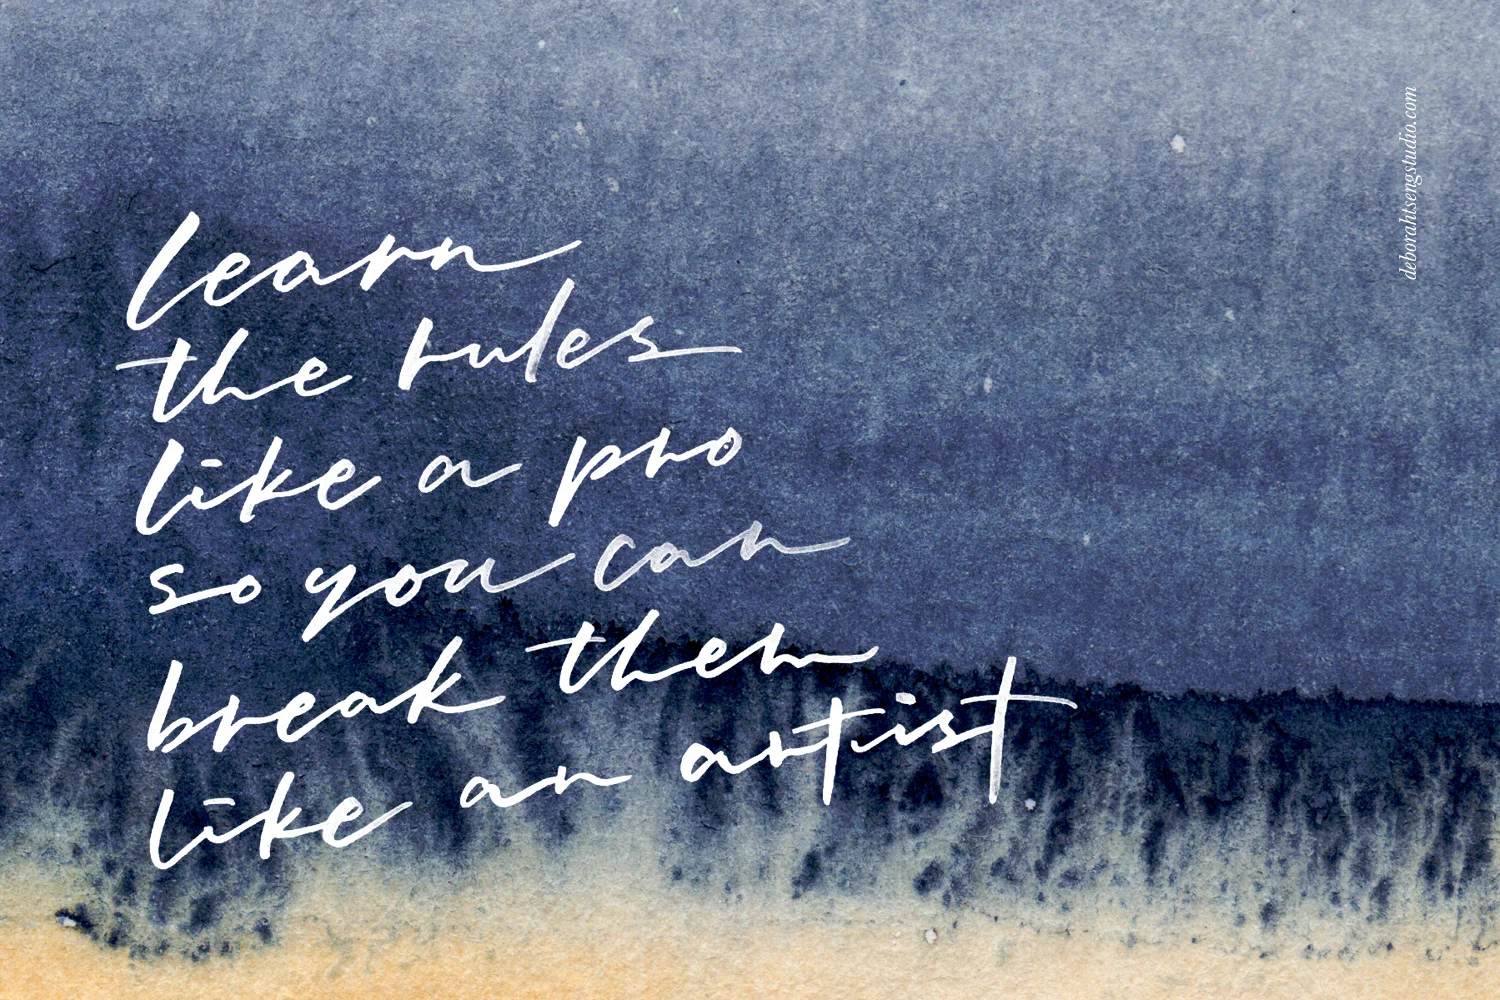 learn
the rules
like a pro
so you can
break them
like an artist
deborahtsengstudio.com